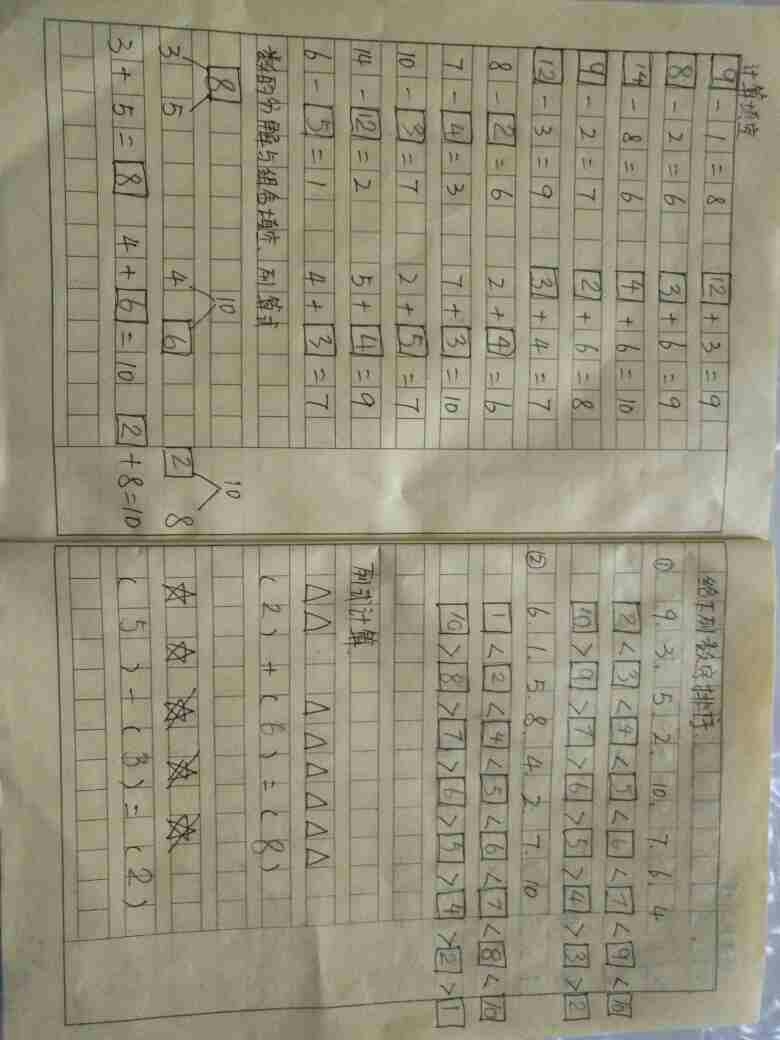 计算填空
9 - 1 = 8 12 + 3 = 9
8 - 2 = 6 3 + 6 = 9
14 - 8 = 6 4 + 6 = 10
9 - 2 = 7 2 + 6 = 8
12 - 3 = 9 3 + 4 = 7
8 - 2 = 6 2 + 4 = 6
7 - 4 = 3 7 + 3 = 10
10 - 3 = 7 2 + 5 = 7
14 - 12 = 2 5 + 4 = 9
6 - 5 = 1 4 + 3 = 7
数的分解与组合填空、列算式
8 10 10
3 5 4 6 2 8
3 + 5 = 8 4 + 6 = 10 2 + 8 = 10
给下列数字排序
① 9. 3. 5 2. 10. 7. 6. 4
2 < 3 < 4 < 5 < 6 < 7 < 9 < 10
10 > 9 > 7 > 6 > 5 > 4 > 3 > 2
② 6. 1. 5. 8. 4. 2. 7. 10
1 < 2 < 4 < 5 < 6 < 7 < 8 < 10
10 > 8 > 7 > 6 > 5 > 4 > 2 > 1
列式计算
(2) + (6) = (8)
(5) - (3) = (2)